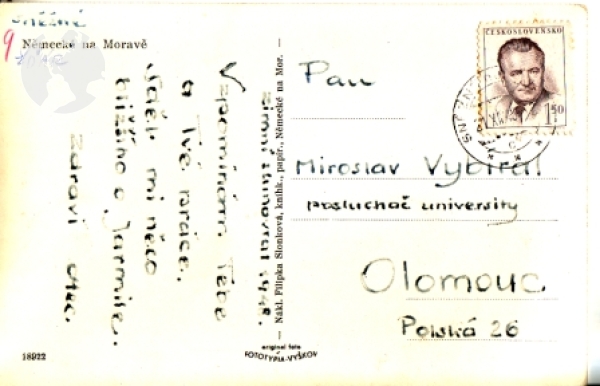 Sněžné
9
Německé na Moravě
Vzpomínám Tebe
a Tvé práce.
Sděl mi něco
bližšího o Jarmile.
Zdraví otec.
— Nákl. Filipka Slonková, knihk., papír., Německé na Mor. —
Pan
Miroslav Vybíral
posluchač university
Olomouc
Polská 26
ČESKOSLOVENSKO
1.50
SNĚŽNÉ
18922
original foto
FOTOTYPIA-VYŠKOV